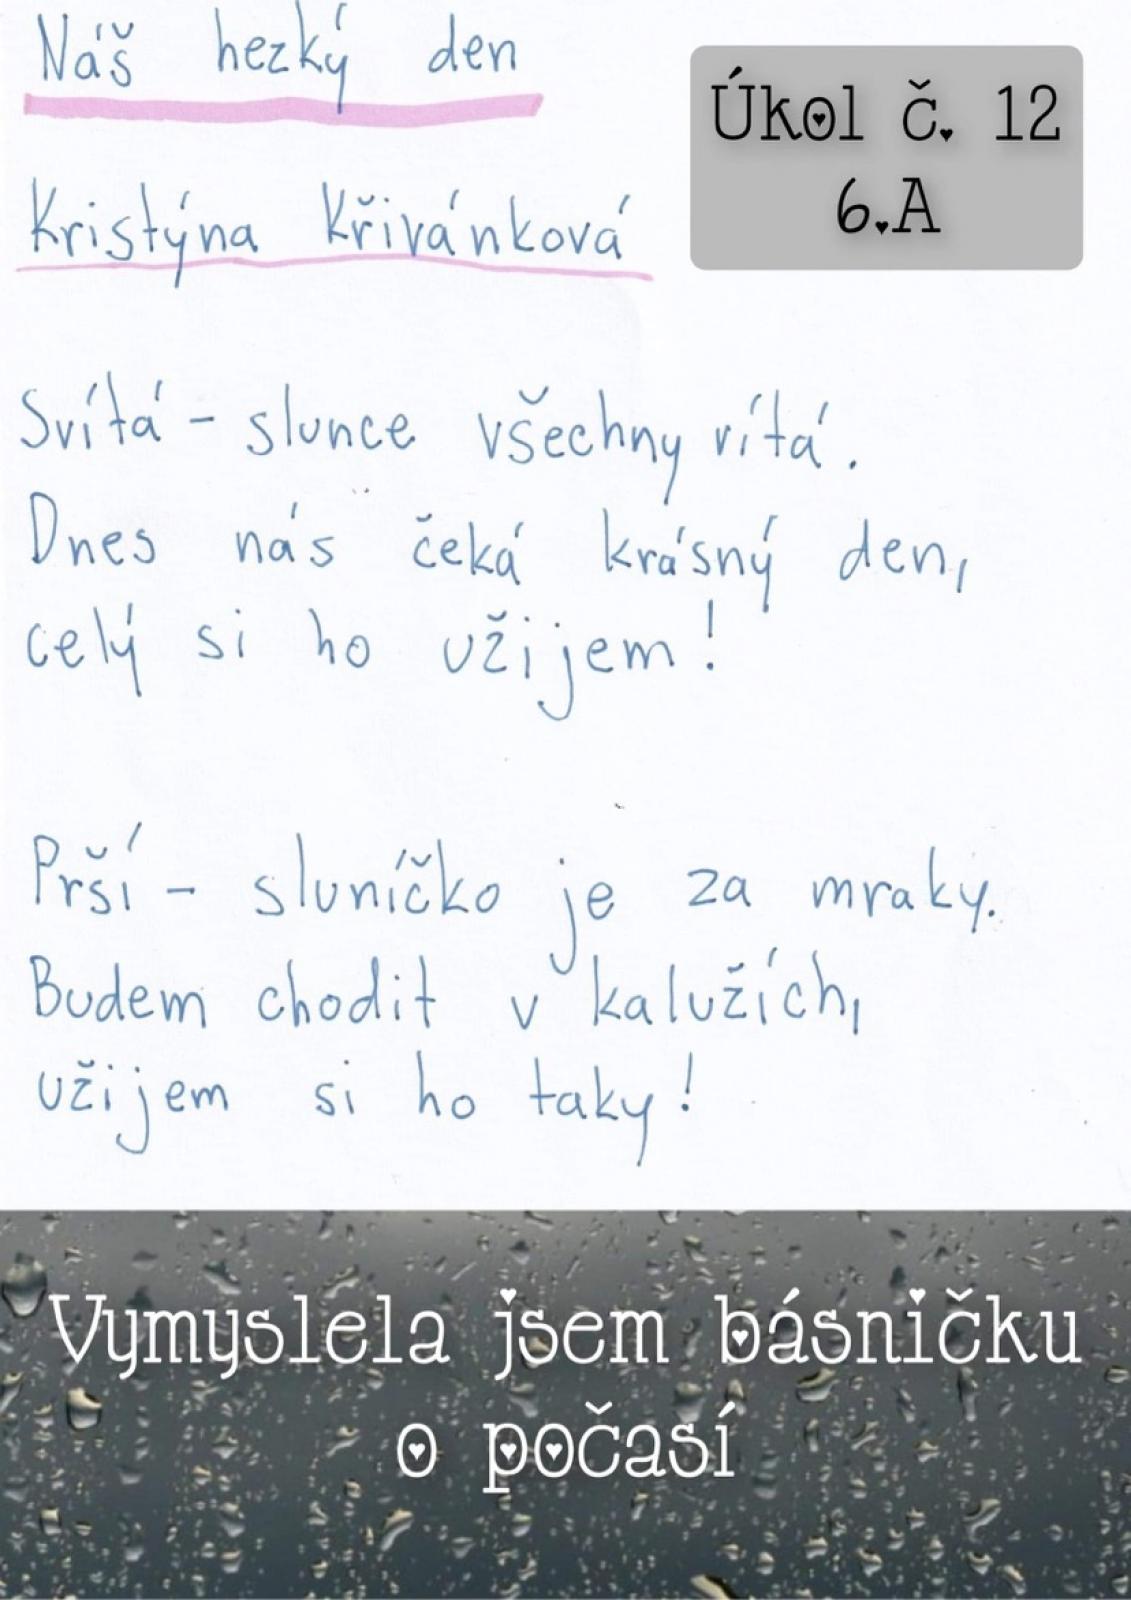 Náš hezký den
Úkol č. 12
6.A
Kristýna Křivánková
Svítá - slunce všechny vítá.
Dnes nás čeká krásný den,
celý si ho užijem!
Prší - sluníčko je za mraky.
Budem chodit v kalužích,
užijem si ho taky!
Vymyslela jsem básničku
o počasí